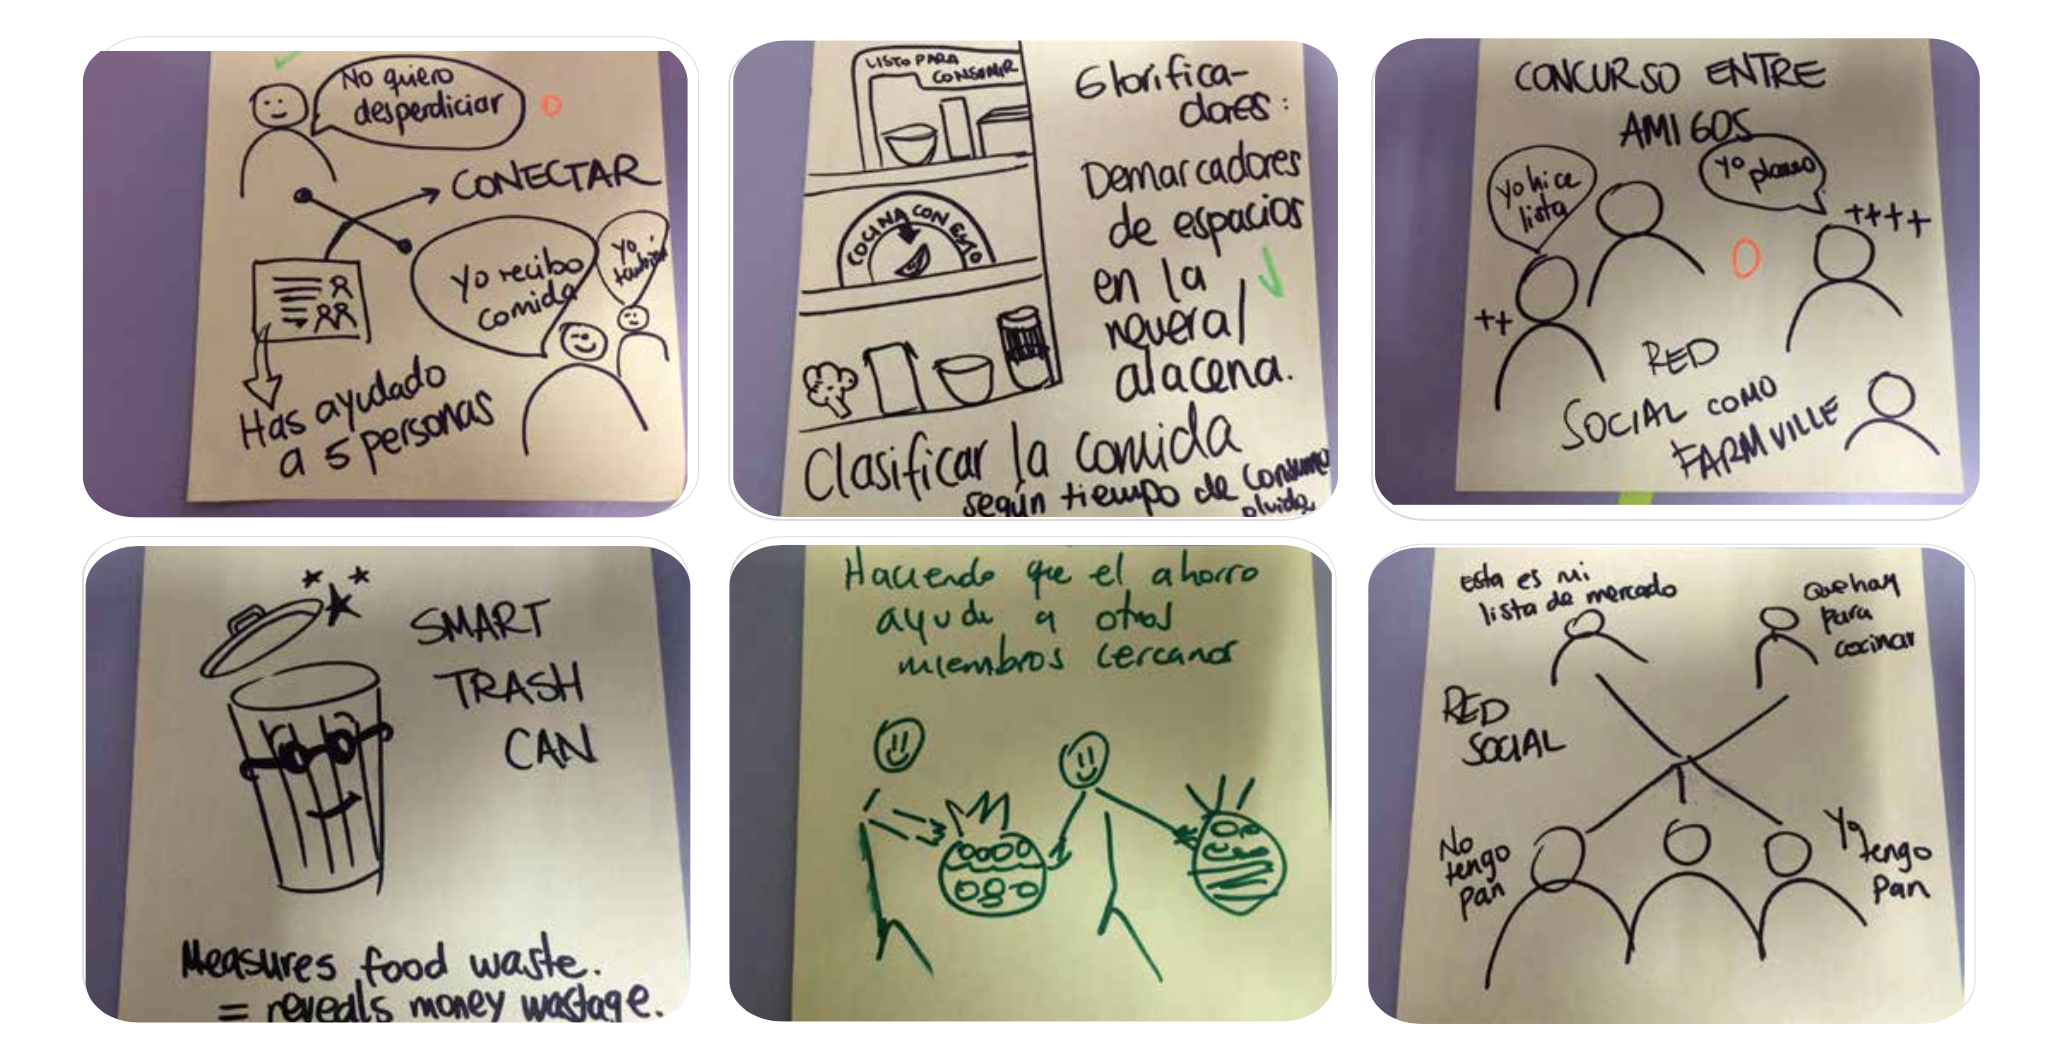 No quiero
desperdiciar
CONECTAR
Yo recibo
comida
yo
también
Has ayudado
a 5 personas
LISTO PARA
CONSUMIR
COCINA CON ESTO
Glorifica-
dores:
Demarcadores
de espacios
en la
nevera/
alacena.
Clasificar la comida
según tiempo de consumo
olvido
CONCURSO ENTRE
AMIGOS
yo hice
lista
yo planeo
++++
++
RED
SOCIAL COMO
FARMVILLE
SMART
TRASH
CAN
Measures food waste.
= reveals money wastage.
Haciendo que el ahorro
ayude a otros
miembros cercanos
esta es mi
lista de mercado
que hay
para
cocinar
RED
SOCIAL
No
tengo
pan
Yo
tengo
pan